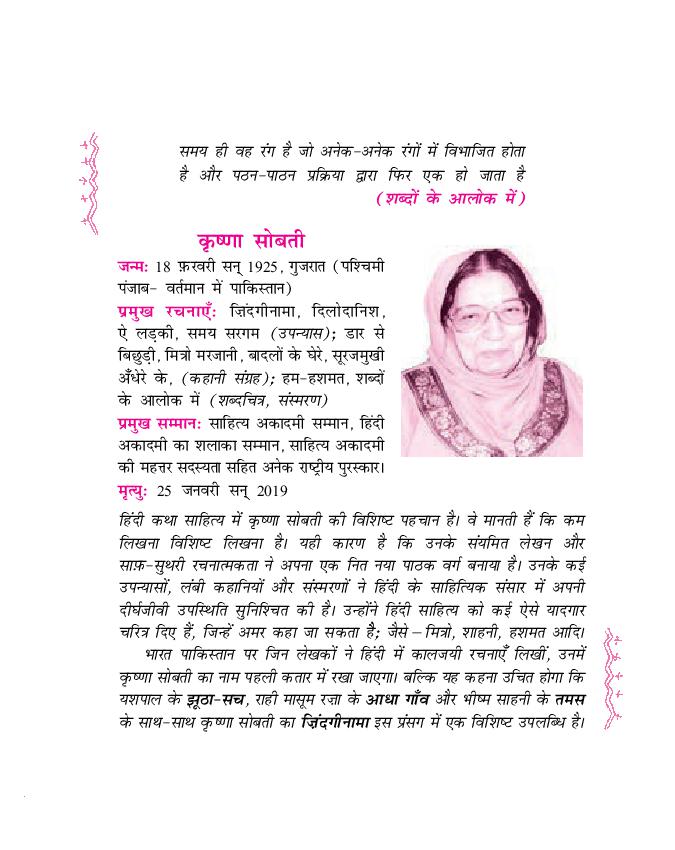 समय ही वह रंग है जो अनेक-अनेक रंगों में विभाजित होता
है और पठन-पाठन प्रक्रिया द्वारा फिर एक हो जाता है
(शब्दों के आलोक में)
कृष्णा सोबती
जन्म: 18 फ़रवरी सन् 1925, गुजरात (पश्चिमी
पंजाब- वर्तमान में पाकिस्तान)
प्रमुख रचनाएँ: ज़िंदगीनामा, दिलोदानिश,
ऐ लड़की, समय सरगम (उपन्यास); डार से
बिछुड़ी, मित्रो मरजानी, बादलों के घेरे, सूरजमुखी
अँधेरे के, (कहानी संग्रह); हम-हशमत, शब्दों
के आलोक में (शब्दचित्र, संस्मरण)
प्रमुख सम्मान: साहित्य अकादमी सम्मान, हिंदी
अकादमी का शलाका सम्मान, साहित्य अकादमी
की महत्तर सदस्यता सहित अनेक राष्ट्रीय पुरस्कार।
मृत्यु: 25 जनवरी सन् 2019
हिंदी कथा साहित्य में कृष्णा सोबती की विशिष्ट पहचान है। वे मानती हैं कि कम
लिखना विशिष्ट लिखना है। यही कारण है कि उनके संयमित लेखन और
साफ़-सुथरी रचनात्मकता ने अपना एक नित नया पाठक वर्ग बनाया है। उनके कई
उपन्यासों, लंबी कहानियों और संस्मरणों ने हिंदी के साहित्यिक संसार में अपनी
दीर्घजीवी उपस्थिति सुनिश्चित की है। उन्होंने हिंदी साहित्य को कई ऐसे यादगार
चरित्र दिए हैं, जिन्हें अमर कहा जा सकता है; जैसे – मित्रो, शाहनी, हशमत आदि।
भारत पाकिस्तान पर जिन लेखकों ने हिंदी में कालजयी रचनाएँ लिखीं, उनमें
कृष्णा सोबती का नाम पहली कतार में रखा जाएगा। बल्कि यह कहना उचित होगा कि
यशपाल के झूठा-सच, राही मासूम रज़ा के आधा गाँव और भीष्म साहनी के तमस
के साथ-साथ कृष्णा सोबती का ज़िंदगीनामा इस प्रसंग में एक विशिष्ट उपलब्धि है।